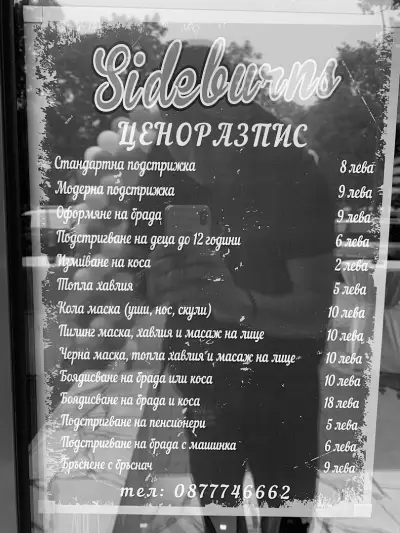 Sideburns
ЦЕНОРАЗПИС
Стандартна подстрижка 8 лева
Модерна подстрижка 9 лева
Оформяне на брада 9 лева
Подстригване на деца до 12 години 6 лева
Измиване на коса 2 лева
Топла хавлия 5 лева
Кола маска (уши, нос, скули) 10 лева
Пилинг маска, хавлия и масаж на лице 10 лева
Черна маска, топла хавлия и масаж на лице 10 лева
Боядисване на брада или коса 10 лева
Боядисване на брада и коса 18 лева
Подстригване на пенсионери 5 лева
Подстригване на брада с машинка 6 лева
Бръснене с бръснач 9 лева
тел: 0877746662